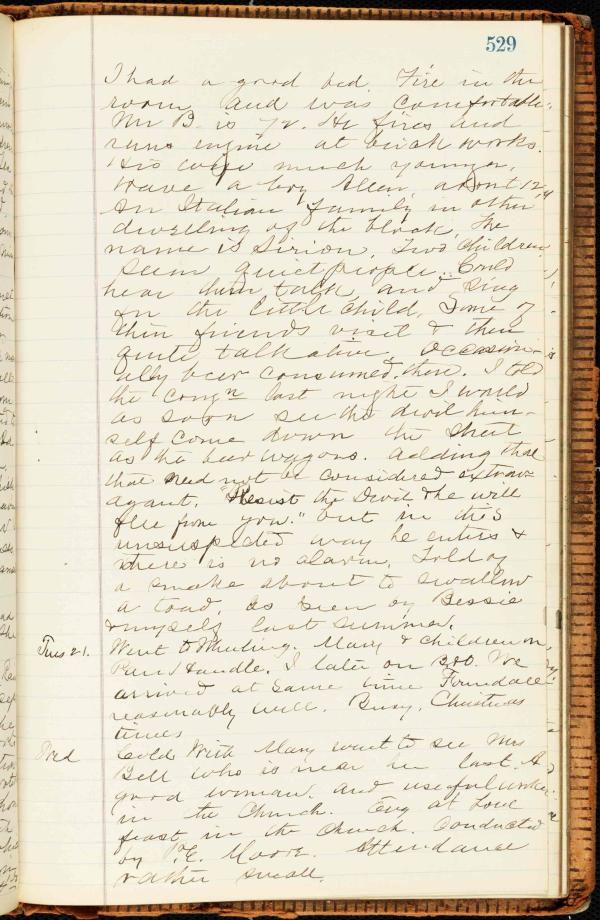 529
I had a good bed. Fire in the
room and was comfortable.
Mr B. is 72. He fires and
runs engine at brick works.
His wife much younger.
have a boy Allen, about 12.
An Italian family in other
dwelling of the block. The
name is Sirion. Two children
seem quiet people. Could
hear them talk and sing
for the little child. Some of
their friends visit & then
quite talkative. Occasion-
ally beer consumed there. I told
the congn last night I would
as soon see the devil him-
self come down the street
as the beer wagons. Adding that
that need not be considered extrav-
agant. "Resist the Devil & he will
flee from you." but in this
unsuspected way he enters &
there is no alarm. Told of
a snake about to swallow
a toad, as seen by Bessie
& myself last summer.
Tues 21. Went to Wheeling. Mary & children on
Pan Handle. I later on B&O. We
arrived at same time. Found all
reasonably well. Busy. Christmas
times
Wed Cold. With Mary went to see Mrs
Bell who is near her last. A
good woman and useful worker
in the Church. Eng at Love
feast in the Church. Conducted
by P.E. Moore. Attendance
rather small.